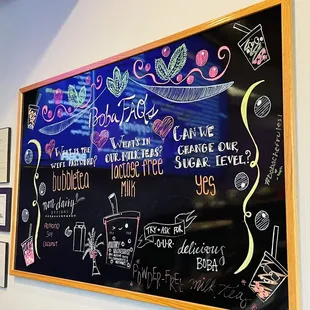 Boba FAQs
What is the
bubbletea
non-dairy?
Almond
Soy
Coconut
What's in
our milk teas?
lactose free
milk
Can we
change our
sugar level?
Yes
Try — Ask for
— our —
delicious
Boba
Powder-Free milk tea